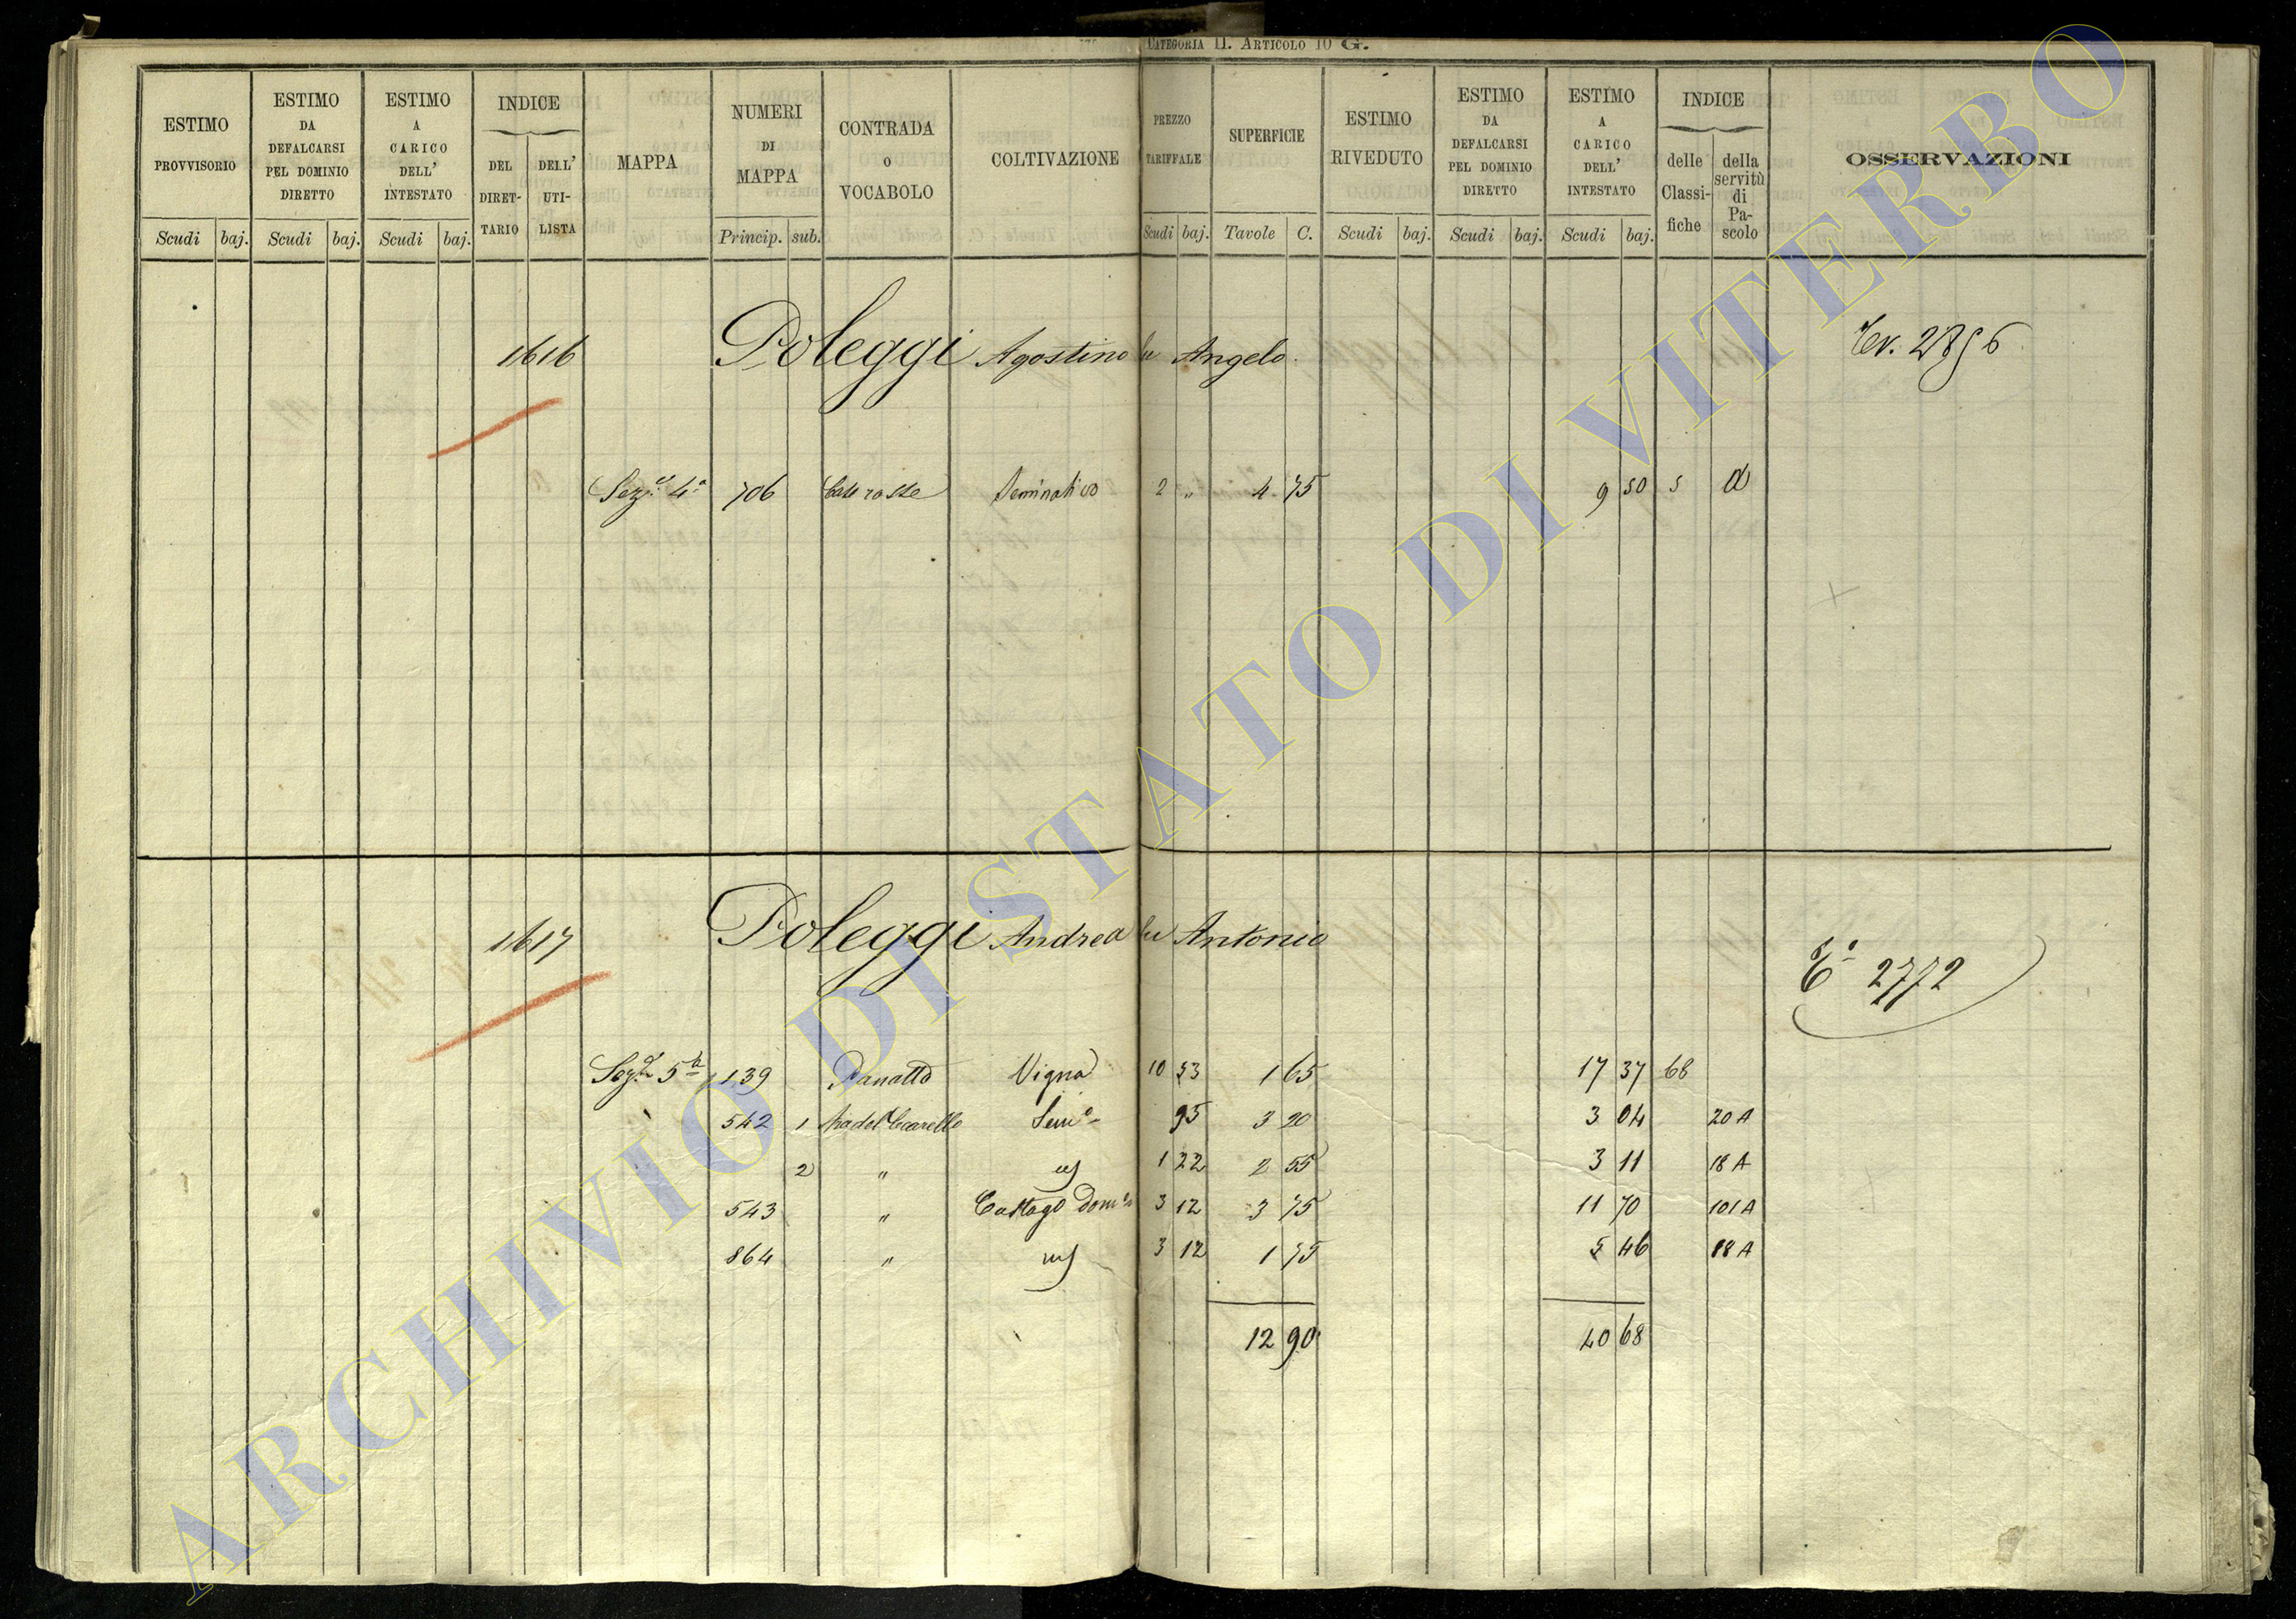 CATEGORIA II. ARTICOLO 10 G.
ESTIMO PROVVISORIO Scudi baj.
ESTIMO DA DEFALCARSI PEL DOMINIO DIRETTO Scudi baj.
ESTIMO A CARICO DELL' INTESTATO Scudi baj.
INDICE DEL DIRET-TARIO DELL' UTI-LISTA
MAPPA
NUMERI DI MAPPA Princip. sub.
CONTRADA O VOCABOLO
COLTIVAZIONE
PREZZO TARIFFALE Scudi baj.
SUPERFICIE Tavole C.
ESTIMO RIVEDUTO Scudi baj.
ESTIMO DA DEFALCARSI PEL DOMINIO DIRETTO Scudi baj.
ESTIMO A CARICO DELL' INTESTATO Scudi baj.
INDICE delle Classi-fiche della servitù di Pa-scolo
OSSERVAZIONI
1616 Poleggi Agostino fu Angelo
2856
Sez.e 4.a 706 Case rosse Seminativo 2 " 4 75 9 50 5 a
1617 Poleggi Andrea fu Antonio
2772
Sez.e 5.a 139 Vigna 10 53 1 65 17 37 68
542 1 Sem.o 95 3 20 3 04 20 A
2 " 1 22 2 55 3 11 18 A
543 " Castag.o Dom.o 3 12 3 75 11 70 101 A
864 " 3 12 1 75 5 46 18 A
12 90 40 68
ARCHIVIO DI STATO DI VITERBO